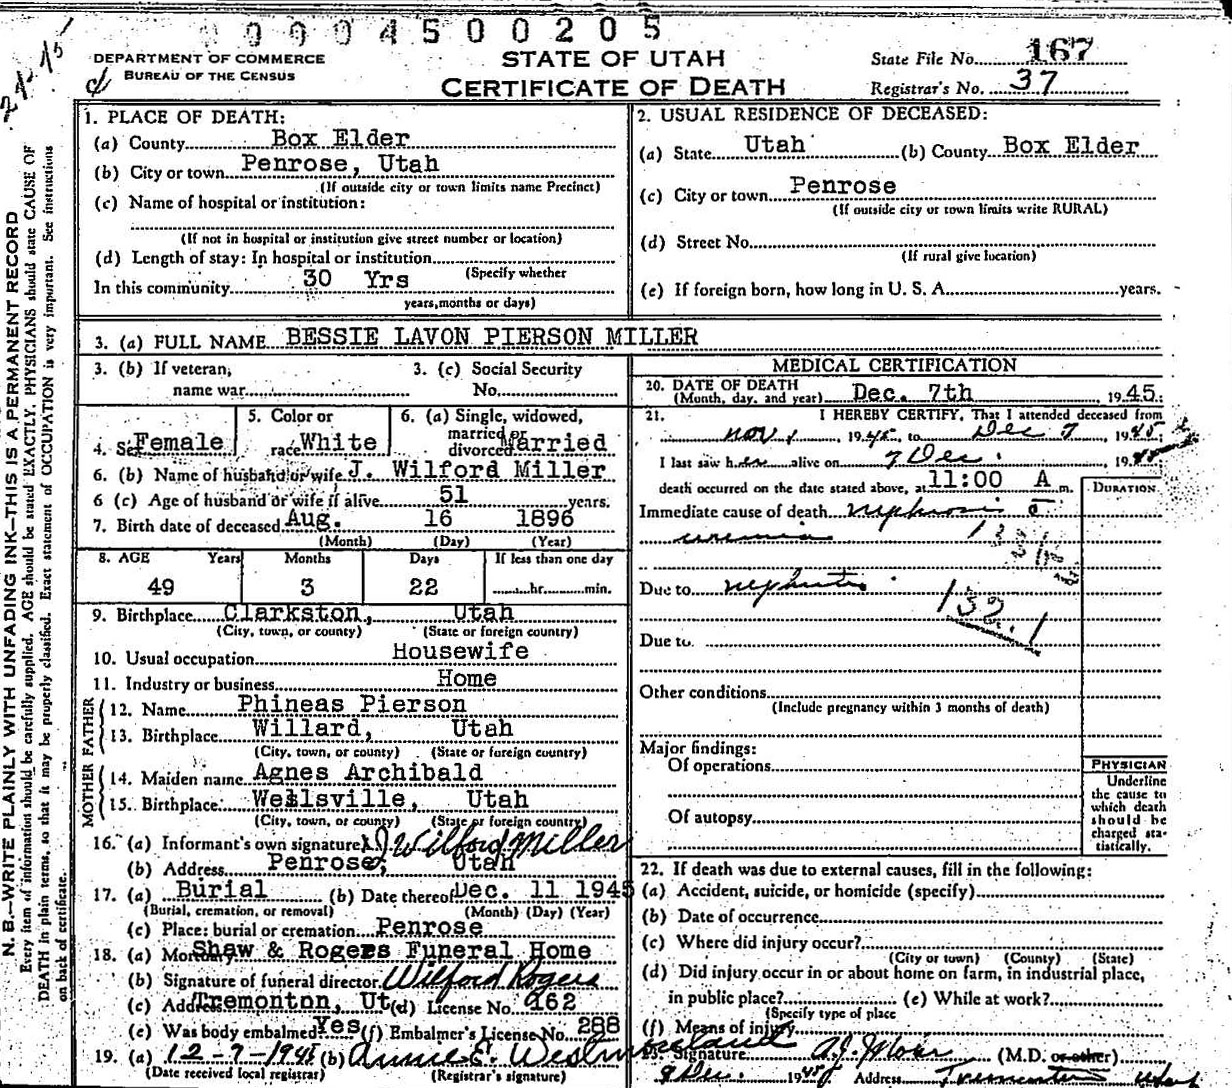 0 0 0 4 5 0 0 2 0 5
DEPARTMENT OF COMMERCE
BUREAU OF THE CENSUS
STATE OF UTAH
CERTIFICATE OF DEATH
State File No. 167
Registrar's No. 37
N. B.—WRITE PLAINLY WITH UNFADING INK—THIS IS A PERMANENT RECORD
Every item of information should be carefully supplied. AGE should be stated EXACTLY. PHYSICIANS should state CAUSE OF
DEATH in plain terms, so that it may be properly classified. Exact statement of OCCUPATION is very important. See instructions
on back of certificate.
1. PLACE OF DEATH:
(a) County Box Elder
(b) City or town Penrose, Utah
(If outside city or town limits name Precinct)
(c) Name of hospital or institution:
(If not in hospital or institution give street number or location)
(d) Length of stay: In hospital or institution
(Specify whether
In this community 30 Yrs
years, months or days)
2. USUAL RESIDENCE OF DECEASED:
(a) State Utah (b) County Box Elder
(c) City or town Penrose
(If outside city or town limits write RURAL)
(d) Street No.
(If rural give location)
(e) If foreign born, how long in U. S. A. years.
3. (a) FULL NAME BESSIE LAVON PIERSON MILLER
3. (b) If veteran, name war
3. (c) Social Security No.
4. Sex Female
5. Color or race White
6. (a) Single, widowed, married or divorced Married
6. (b) Name of husband or wife J. Wilford Miller
6 (c) Age of husband or wife if alive 51 years.
7. Birth date of deceased Aug. 16 1896
(Month) (Day) (Year)
8. AGE Years Months Days If less than one day
49 3 22 hr. min.
9. Birthplace Clarkston, Utah
(City, town, or county) (State or foreign country)
10. Usual occupation Housewife
11. Industry or business Home
FATHER
12. Name Phineas Pierson
13. Birthplace Willard, Utah
(City, town, or county) (State or foreign country)
MOTHER
14. Maiden name Agnes Archibald
15. Birthplace Wellsville, Utah
(City, town, or county) (State or foreign country)
16. (a) Informant's own signature J Wilford Miller
(b) Address Penrose, Utah
17. (a) Burial (b) Date thereof Dec. 11 1945
(Burial, cremation, or removal) (Month) (Day) (Year)
(c) Place: burial or cremation Penrose
18. (a) Mortuary Shaw & Rogers Funeral Home
(b) Signature of funeral director Wilford Rogers
(c) Address Tremonton, Ut (d) License No. 262
(e) Was body embalmed Yes (f) Embalmer's License No. 288
19. (a) 12-9-1945 (b) Annie E. Westmoreland
(Date received local registrar) (Registrar's signature)
MEDICAL CERTIFICATION
20. DATE OF DEATH
(Month, day, and year) Dec. 7th, 1945.
21. I HEREBY CERTIFY, That I attended deceased from
Nov 1, 1945, to Dec 7, 1945;
I last saw her alive on 7 Dec., 1945
death occurred on the date stated above, at 11:00 A m.
DURATION
Immediate cause of death nephrosis c̄
uremia
Due to nephritis
132.1
Due to
Other conditions
(Include pregnancy within 3 months of death)
Major findings:
Of operations
Of autopsy
PHYSICIAN
Underline
the cause to
which death
should be
charged sta-
tistically.
22. If death was due to external causes, fill in the following:
(a) Accident, suicide, or homicide (specify)
(b) Date of occurrence
(c) Where did injury occur?
(City or town) (County) (State)
(d) Did injury occur in or about home on farm, in industrial place,
in public place? (e) While at work?
(Specify type of place
(f) Means of injury
23. Signature (M.D. or other)
9 Dec. 1945 Address Tremonton Utah